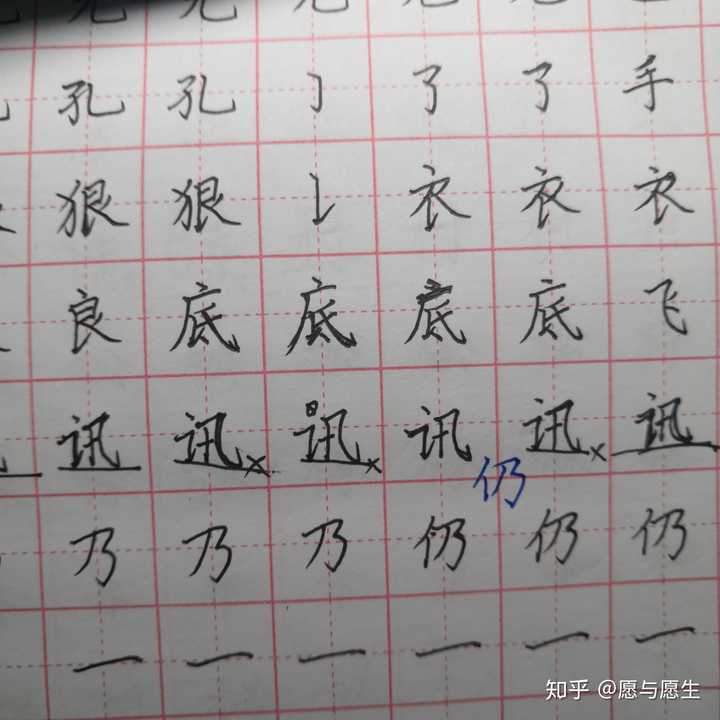 孔 孔 亅 了 了 手
狠 狠 𠄌 衣 衣 衣
良 底 底 底 底 飞
讯 讯 讯 讯 讯 讯
仍
乃 乃 乃 仍 仍 仍
一 一 一 一 一 一
知乎 @愿与愿生